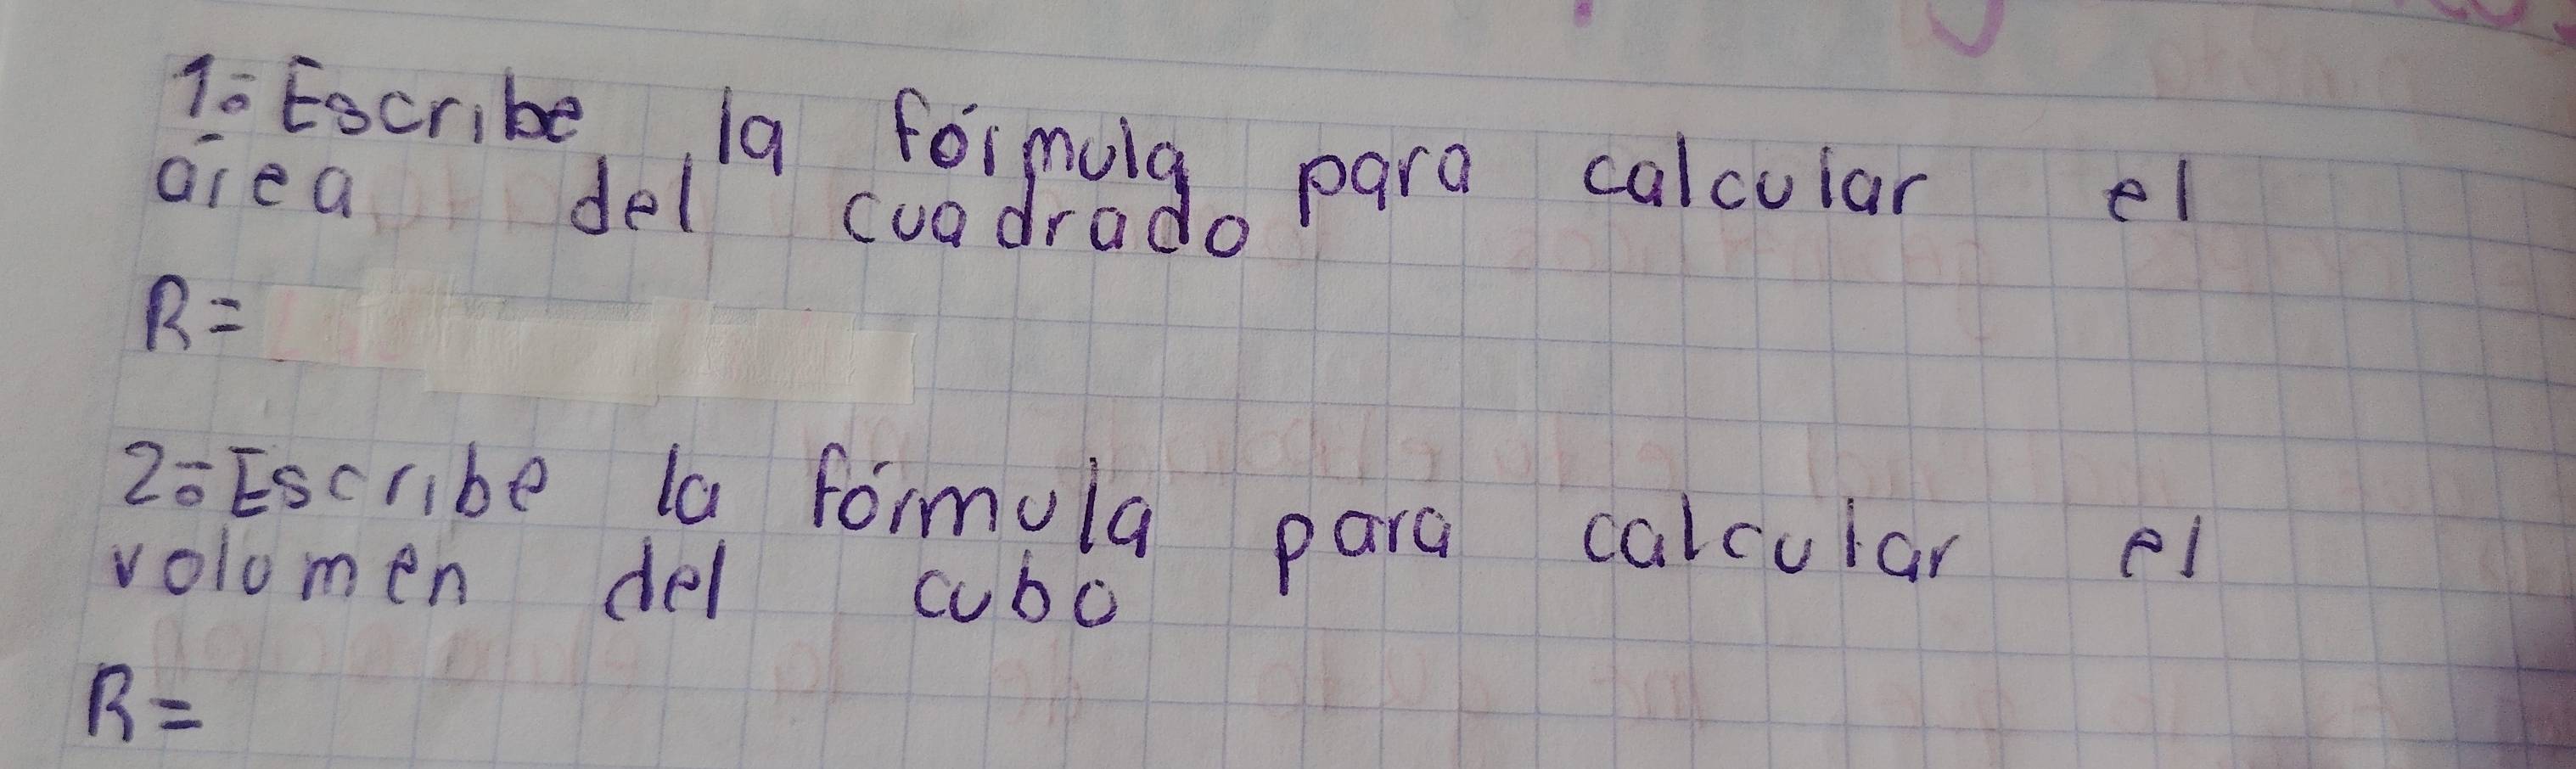 1.- Escribe la fórmula para calcular el
área del cuadrado
R=
2.- Escribe la fórmula para calcular el
volumen del cubo
R=